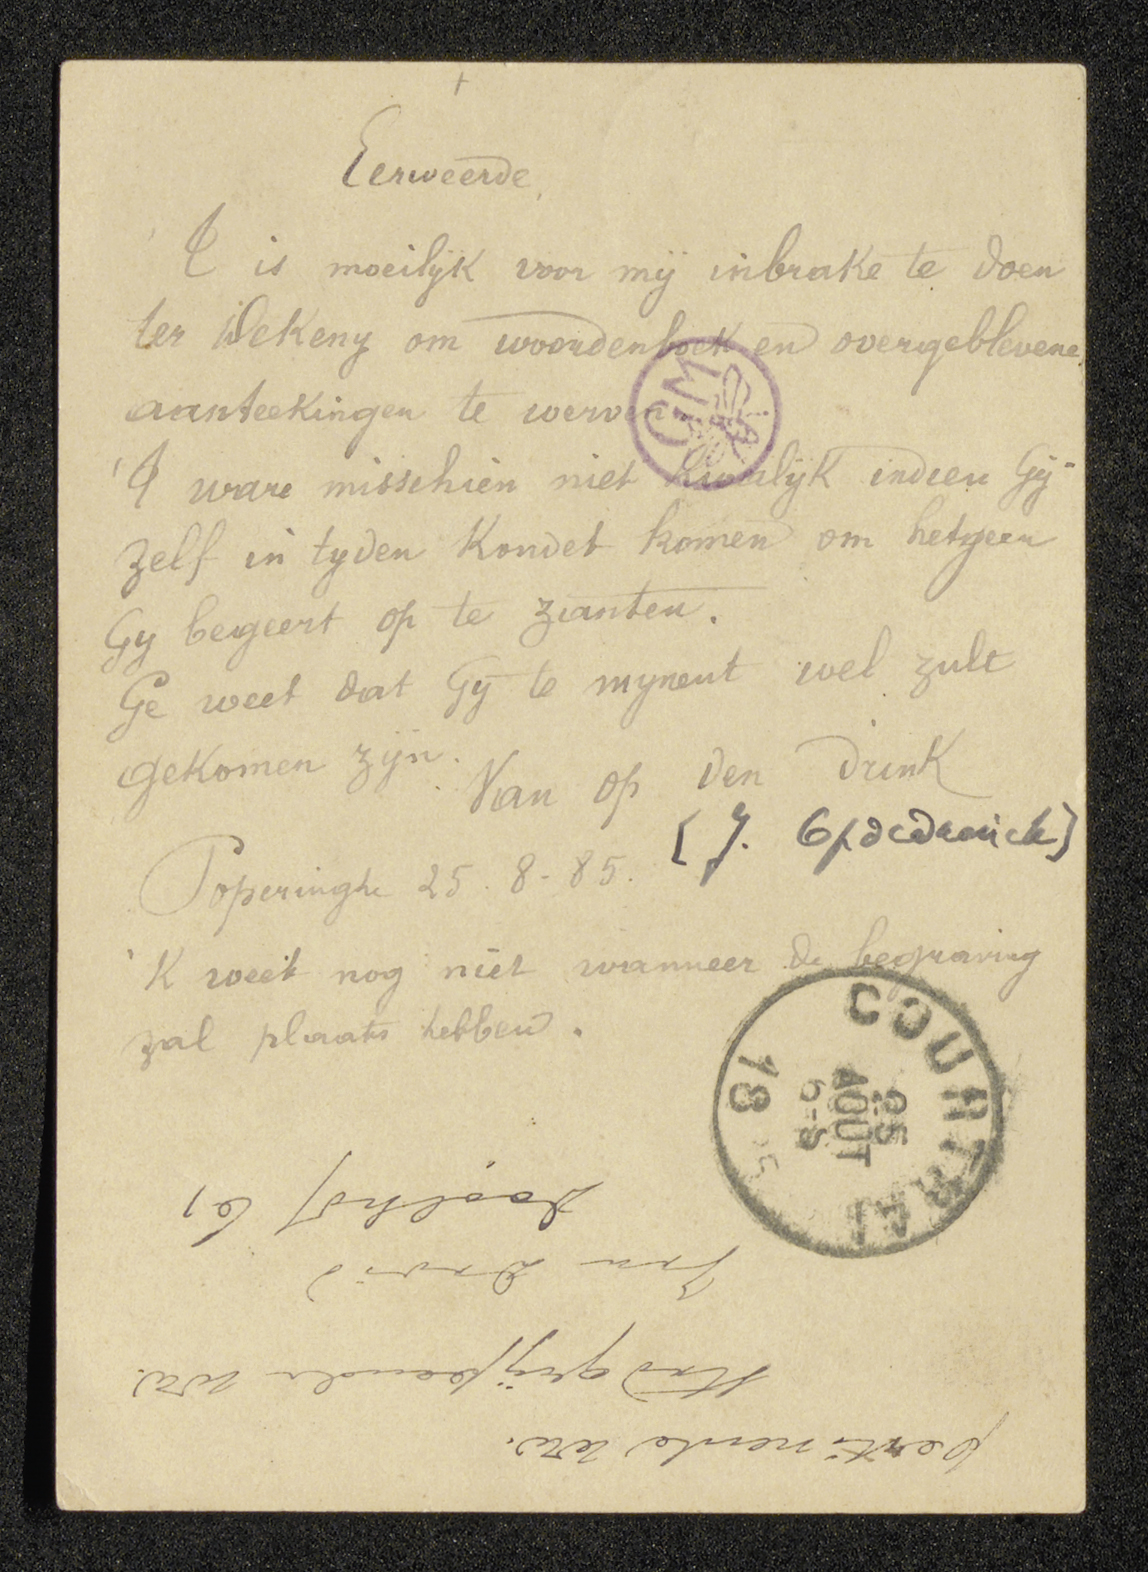 +
Eerweerde
'T is moeilijk voor mij inbrake te doen
ter Dekeny om woordenboek en overgeblevene
aanteekingen te werven
'T ware misschien niet kwalijk indien Gij
zelf in tyden kondet komen om hetgeen
Gy begeert op te zanten.
Ge weet dat Gij te mynent wel zult
gekomen zijn.
Van op den drink
[J. Opdedrinck]
Poperinghe 25.8-85.
'K weet nog niet wanneer de begraving
zal plaats hebben.
GM
COURTRAI
25
AOUT
6-S
18
pertinente ww.
Hadgrijpende ww.
Jan David
Doolhof 61